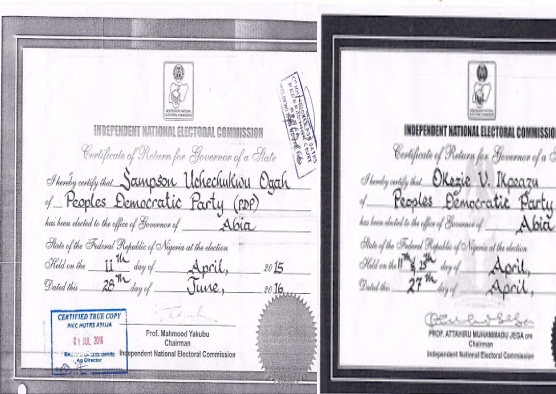 INDEPENDENT NATIONAL ELECTORAL COMMISSION
Certificate of Return for Governor of a State
I hereby certify that Sampson Uchechukwu Ogah
of Peoples Democratic Party (PDP)
has been elected to the office of Governor of Abia
State of the Federal Republic of Nigeria at the election
Held on the 11th day of April, 2015
Dated this 28th day of June, 2016
CERTIFIED TRUE COPY
01 JUL 2016
Ag Director
Prof. Mahmood Yakubu
Chairman
Independent National Electoral Commission
INDEPENDENT NATIONAL ELECTORAL COMMISSIO
Certificate of Return for Governor of a S
I hereby certify that Okezie V. Ikpeazu
of Peoples Democratic Party
has been elected to the office of Governor of Abia
State of the Federal Republic of Nigeria at the election
Held on the 11th & 25th day of April,
Dated this 27th day of April,
PROF. ATTAHIRU MUHAMMADU JEGA
Chairman
Independent National Electoral Commission